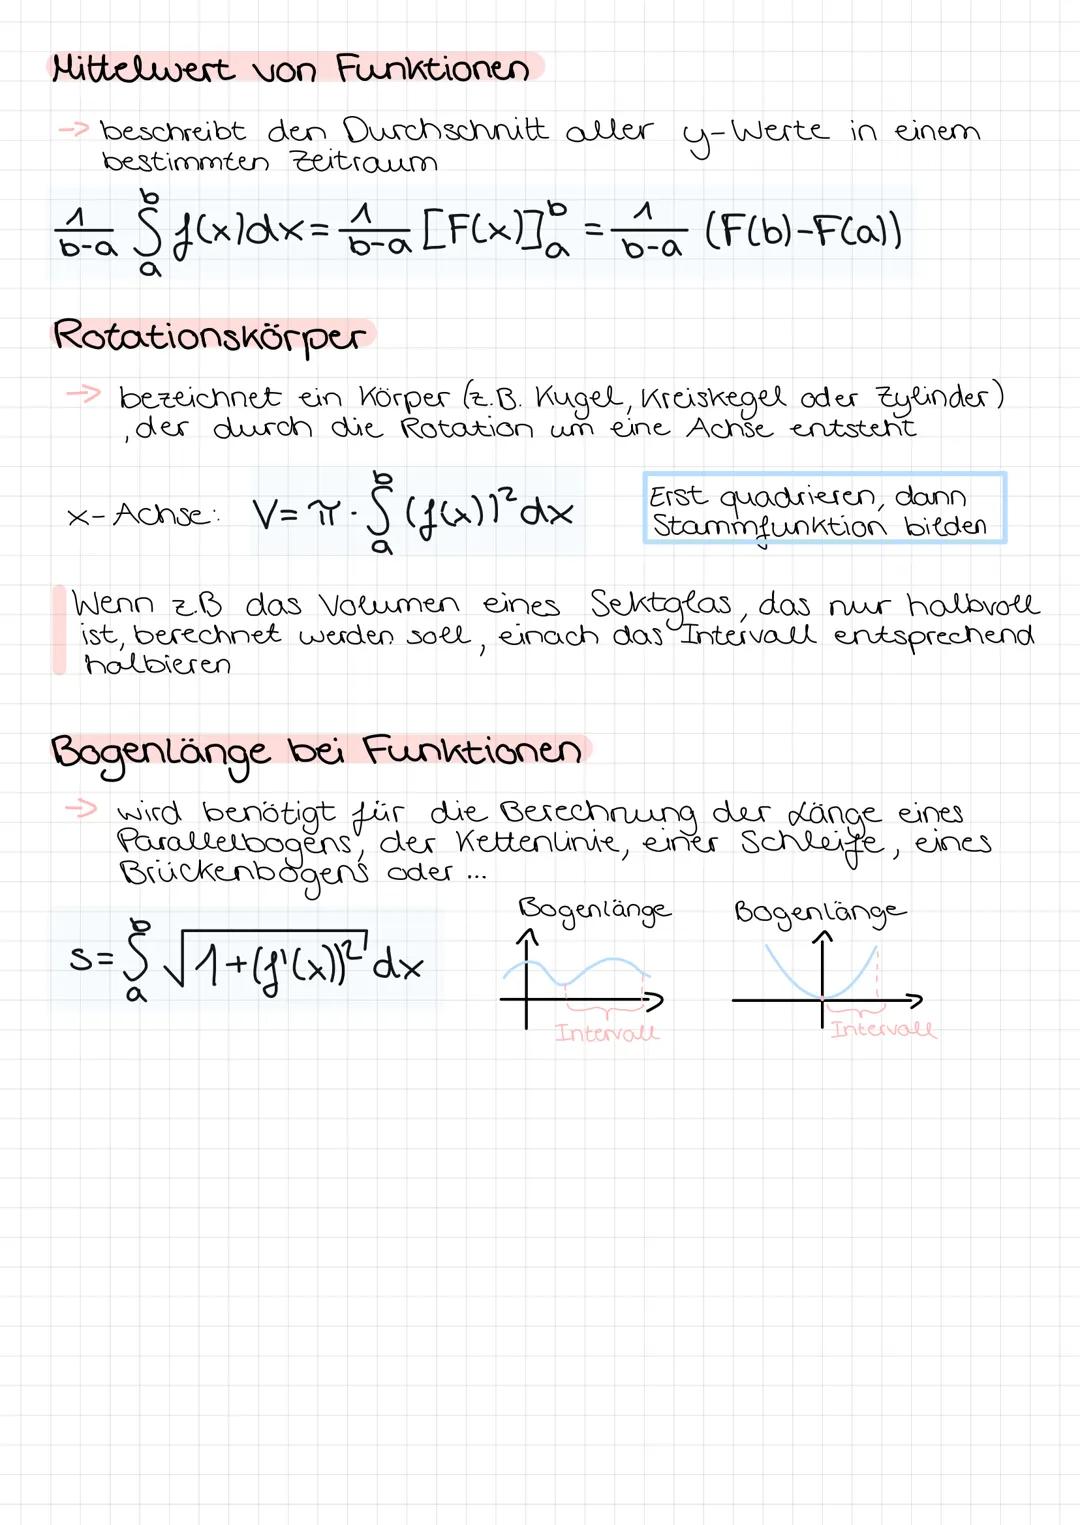 Mittelwert von Funktionen
→ beschreibt den Durchschnitt aller y-Werte in einem
bestimmten Zeitraum
1/(b-a) ∫_a^b f(x)dx = 1/(b-a) [F(x)]_a^b = 1/(b-a) (F(b)-F(a))
Rotationskörper
→ bezeichnet ein Körper (z.B. Kugel, Kreiskegel oder Zylinder)
, der durch die Rotation um eine Achse entsteht
x-Achse: V= π · ∫_a^b (f(x))² dx
Erst quadrieren, dann
Stammfunktion bilden
Wenn z.B das Volumen eines Sektglas, das nur halbvoll
ist, berechnet werden soll, einach das Intervall entsprechend
halbieren
Bogenlänge bei Funktionen
→ wird benötigt für die Berechnung der Länge eines
Parallelbogens, der Kettenlinie, einer Schleife, eines
Brückenbogens oder ...
s= ∫_a^b √(1+(f'(x))²) dx
Bogenlänge
Intervall
Bogenlänge
Intervall